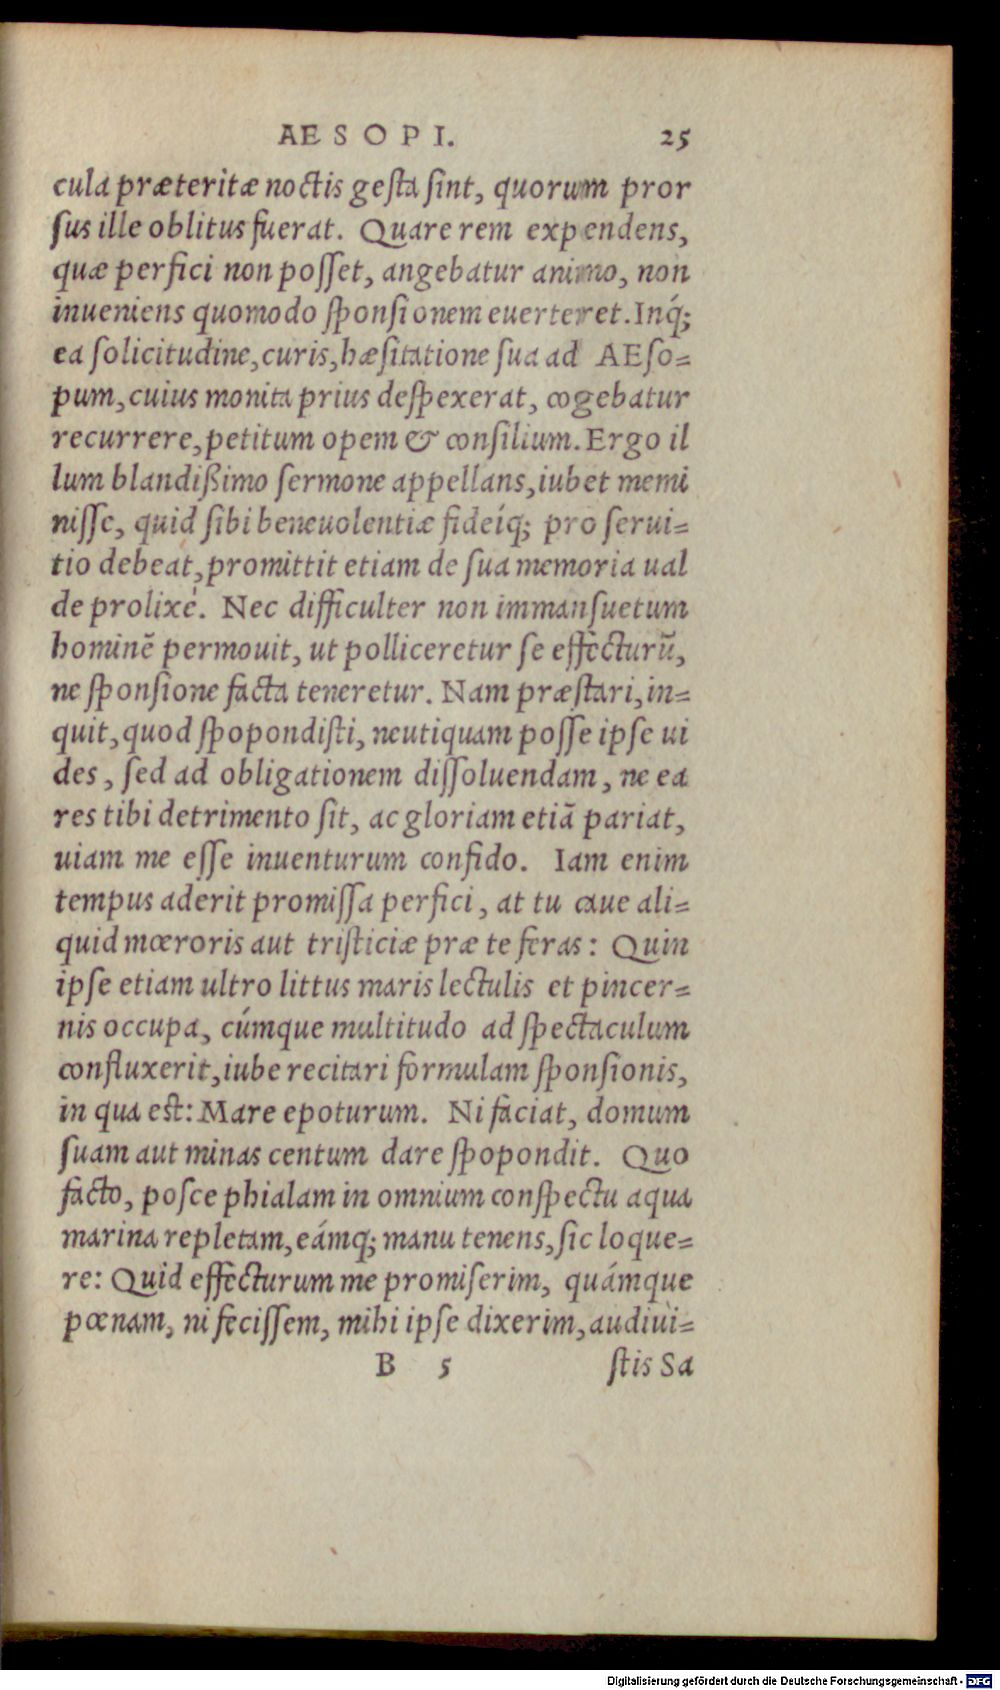 AESOPI. 25
cula præteritæ noctis gesta sint, quorum pror
sus ille oblitus fuerat. Quare rem expendens,
quæ perfici non posset, angebatur animo, non
inueniens quomodo sponsionem euerteret. Inq́;
ea solicitudine, curis, hæsitatione sua ad AEso-
pum, cuius monita prius despexerat, cogebatur
recurrere, petitum opem & consilium. Ergo il
lum blandißimo sermone appellans, iubet memi
nisse, quid sibi beneuolentiæ fideíq; pro serui-
tio debeat, promittit etiam de sua memoria ual
de prolixè. Nec difficulter non immansuetum
hominē permouit, ut polliceretur se effecturū,
ne sponsione facta teneretur. Nam præstari, in-
quit, quod spopondisti, neutiquam posse ipse ui
des, sed ad obligationem dissoluendam, ne ea
res tibi detrimento sit, ac gloriam etiā pariat,
uiam me esse inuenturum confido. Iam enim
tempus aderit promissa perfici, at tu caue ali-
quid mœroris aut tristiciæ præ te feras: Quin
ipse etiam ultro littus maris lectulis et pincer-
nis occupa, cúmque multitudo ad spectaculum
confluxerit, iube recitari formulam sponsionis,
in qua est: Mare epoturum. Ni faciat, domum
suam aut minas centum dare spopondit. Quo
facto, posce phialam in omnium conspectu aqua
marina repletam, eámq; manu tenens, sic loque-
re: Quid effecturum me promiserim, quámque
pœnam, ni fecissem, mihi ipse dixerim, audiui-
B 5 stis Sa
Digitalisierung gefördert durch die Deutsche Forschungsgemeinschaft - DFG